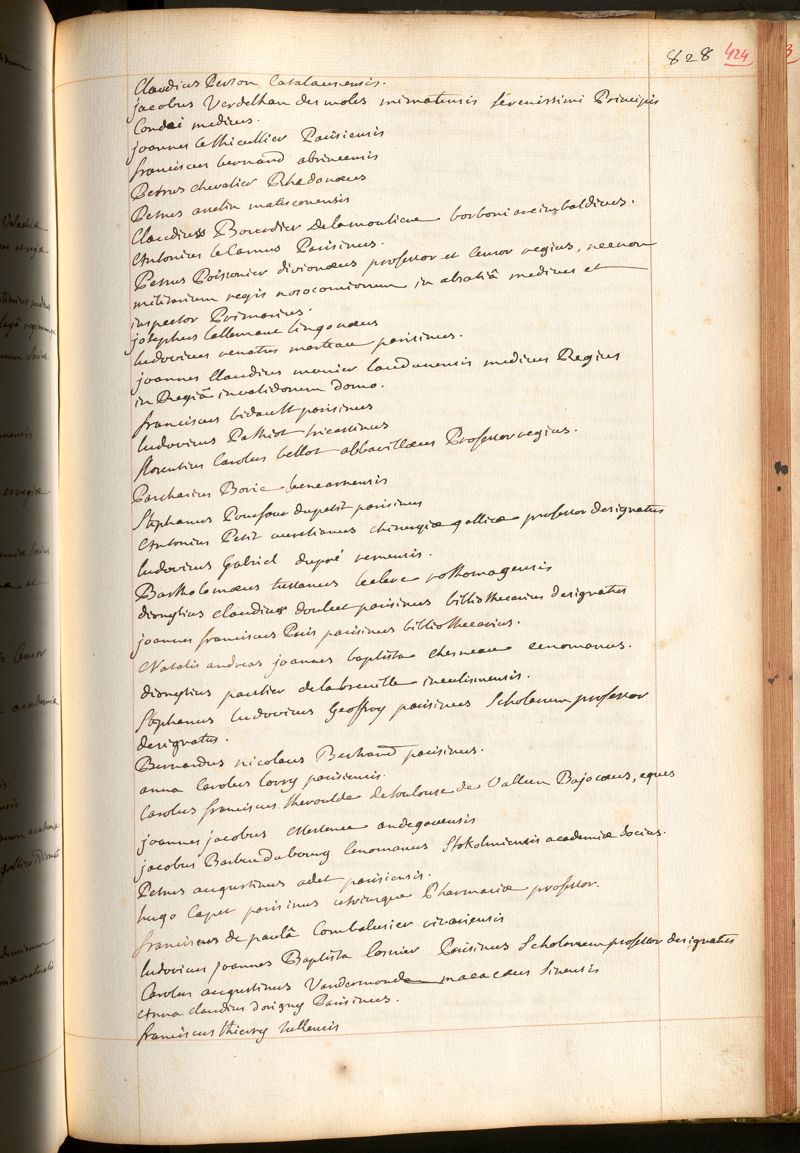 828 424
Claudius Person Catalaunensis.
jacobus Verdelhan des moles mimatensis serenissimi Principis
Condei medicus.
joannes le thieullier Parisiensis
franciscus bernard abrincensis
Petrus chevalier Rhedonæus
Petrus avelin matisconensis
Claudius Bourdier delamouliere borboni arcimbaldicus.
Antonius le Camus Parisinus.
Petrus Poissonier divionæus professor et Censor regius, necnon
militarium regis nosocomiorum in alsatiâ medicus et
inspector Primarius.
josephus lallemant lingonæus
ludovicus renatus marteau parisinus.
joannes Claudius munier laudunensis medicus Regius
in Regiâ invalidorum domo.
franciscus bidault parisinus
ludovicus Pathiot tricassinus
florentius Carolus bellot abbavillæus Professor regius.
Paschasius Borie benearnensis
Stephanus Pourfour dupetit parisinus
Antonius Petit aurelianus chirurgiæ gallicæ professor designatus
ludovicus Gabriel dupré remensis.
Bartholomæus tussanus leclerc rothomagensis
dionysius claudius doulcet parisinus bibliothecarius designatus
joannes franciscus Paris parisinus bibliothecarius.
Natalis andreas joannes baptista chesneau cenomanus.
dionysius paulier delabreuille inculismensis.
Stephanus ludovicus Geoffroy parisinus Scholarum professor
designatus.
Bernardus nicolaus Bertrand parisinus.
anna Carolus lorry parisiensis.
Carolus franciscus theroulde de toulouse de Vallun Bajocæus, eques
joannes jacobus Messence andegavensis
jacobus Barbeu dubourg Cenomanus Stokolmiensis academiæ Socius.
Petrus augustinus adet parisiensis.
hugo Capet parisinus utriusque Pharmaciæ professor.
franciscus de paulâ Combalusier vivariensis
ludovicus joannes Baptista Cosnier Parisinus Scholarum professor designatus
Carolus augustinus Vandermonde macaæus Sinensis
Anna claudius dorigny Parisinus.
franciscus thiery tullensis